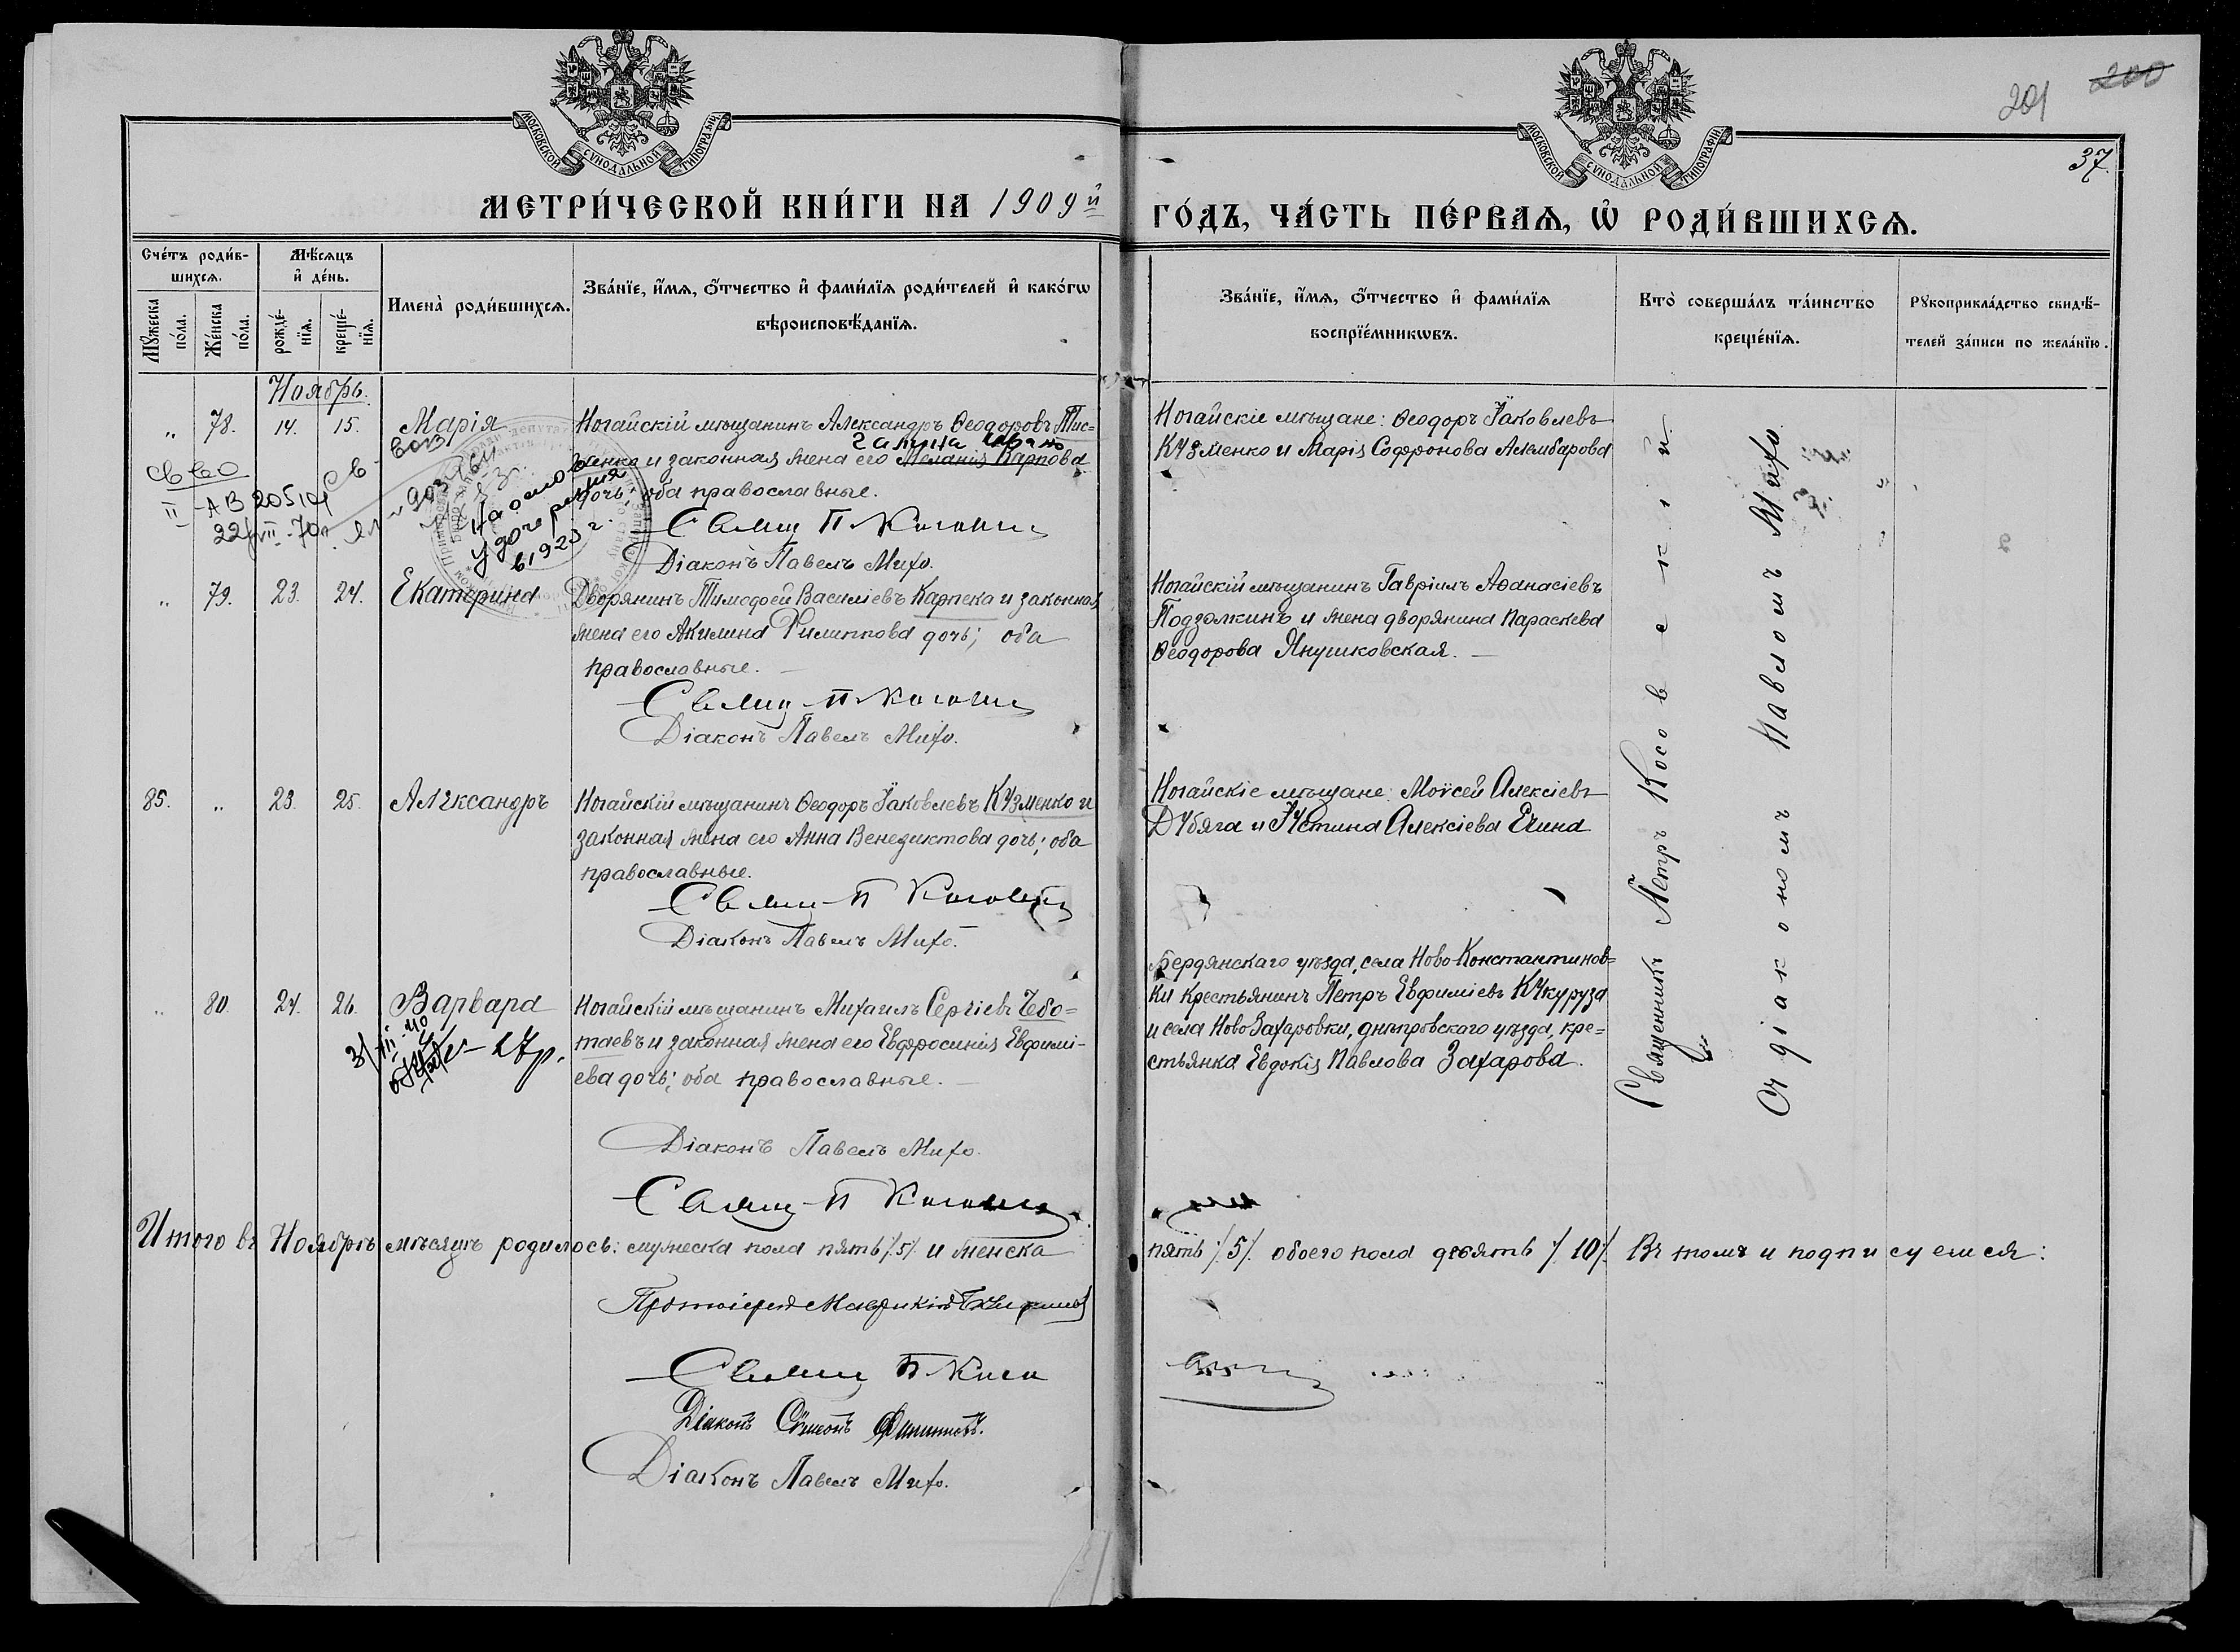 МОСКОВСКОЙ СУНОДАЛЬНОЙ ТИПОГРАФІИ
МОСКОВСКОЙ СУНОДАЛЬНОЙ ТИПОГРАФІИ
200
201
37
МЕТРИ́ЧЕСКОЙ КНИ́ГИ НА 1909й ГО́ДЪ, ЧА́СТЬ ПЕ́РВАѦ, Ѡ҆ РОДИ́ВШИХСѦ.
Сче́тъ роди́в-
шихсѧ.
Мѣ́сѧцъ
и҆ де́нь.
Мꙋ́жеска по́ла.
Же́нска по́ла.
рожде́-
нїѧ.
креще́-
нїѧ.
Имена̀ роди́вшихсѧ.
Зва́нїе, и҆́мѧ, ѻ҆́тчество и҆ фами́лїѧ роди́телей и҆ како́гѡ
вѣроисповѣ́данїѧ.
Зва́нїе, и҆́мѧ, ѻ҆́тчество и҆ фами́лїѧ
воспрїе́мникѡвъ.
Кто̀ соверша́лъ та́инство
креще́нїѧ.
Рꙋкоприкла́дство свидѣ́-
телей за́писи по жела́нїю.
Ноябрь.
„ 78. 14. 15. Марія
Ногайскій мѣщанинъ Александръ Ѳеодоровъ Тис-
Галина Ивано
ченко и законная жена его Меланія Карпова
дочь; оба православные.
Свящ П Косовск
Діаконъ Павелъ Михо.
Ногайскіе мѣщане: Ѳеодоръ Іаковлевъ
Кузменко и Марія Софронова Алембарова
Св во
II-АВ 20510
22/VII-70
На основ
удочерения
в 1923 г.
„ 79. 23. 24. Екатерина
Дворянинъ Тимофей Василіевъ Карпека и законная
жена его Акилина Филиппова дочь; оба
православные.
Свящ П Косовск
Діаконъ Павелъ Михо.
Ногайскій мѣщанинъ Гавріилъ Аѳанасіевъ
Подзолкинъ и жена дворянина Параскева
Ѳеодорова Янушковская.
85. „ 23. 25. Александръ
Ногайскій мѣщанинъ Ѳеодоръ Іаковлевъ Кузменко и
законная жена его Анна Венедиктова дочь; оба
православные.
Свящ П Косовск
Діаконъ Павелъ Михо.
Ногайскіе мѣщане: Моѵсей Алексіевъ
Дубяга и Іустина Алексіева Ечина
„ 80. 24. 26. Варвара
Ногайскій мѣщанинъ Михаилъ Сергіевъ Чебо-
таевъ и законная жена его Евфросинія Евфимі-
ева дочь; оба православные.
Діаконъ Павелъ Михо.
Свящ П Косовск
Бердянскаго уѣзда, села Ново-Константинов-
ки крестьянинъ Петръ Евфиміевъ Кукуруза
и села Ново Захаровки, днѣпровского уѣзда, кре-
стьянка Евдокія Павлова Захарова.
Священникъ Петръ Косовскій
съ діакономъ Павломъ Михо
Итого въ Ноябрѣ мѣсяцѣ родилось: мужеска пола пять /5/ и женска пять /5/ обоего пола десять /10/. Въ томъ и подписуемся:
Протоіерей Маврикій
Свящ П Косо
Діаконъ Сѵмеонъ Филипповъ.
Діаконъ Павелъ Михо.